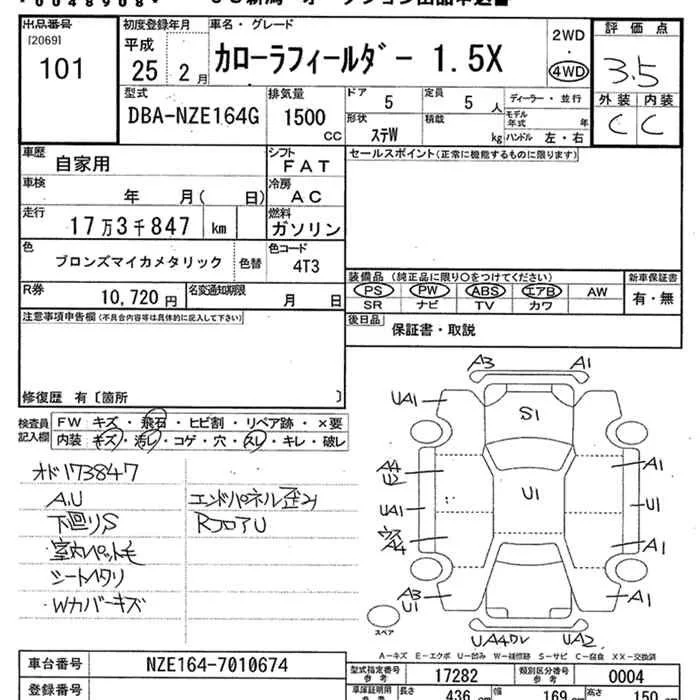 00489089 USS新潟 オークション出品申込書
出品番号 初度登録年月 車名・グレード 評価点
[2069]
101
平成
25 2月
カローラフィールダー 1.5X
2WD
・
4WD
3.5
外装 内装
C C
型式
DBA-NZE164G
排気量
1500
CC
ドア 5
定員 5 人
ディーラー・並行
形状 ステW
積載 kg
モデル年式 年
ハンドル 左・右
車歴 自家用
シフト FAT
セールスポイント(正常に機能するものに限ります)
車検 年 月( 日)
冷房 AC
走行 17万3千847 km
燃料 ガソリン
色 ブロンズマイカメタリック 色替
色コード 4T3
装備品 (純正品に限り○をつけてください)
新車保証書
PS PW ABS エアB AW
有・無
SR ナビ TV カワ
R券 10,720 円
名変通知期限 月 日
後日品 保証書・取説
注意事項申告欄(不具合内容等は具体的に記入して下さい)
修復歴 有〔箇所 〕
検査員記入欄
FW キズ・飛石・ヒビ割・リペア跡・×要
内装 キズ・汚レ・コゲ・穴・スレ・キレ・破レ
オド173847
A.U
下廻りS
室内ペット毛
シートヘタリ
Wカバーキズ
エンドパネル歪み
RフロアU
A3 A1
UA1
S1
A4
U2
A1
U1
UA1
U1
A4
A1
A3
U1
A1
UA2
スペア
A-キズ E-エクボ U-凹み W-補修跡 S-サビ C-腐食 XX-交換済
車台番号 NZE164-7010674
型式指定番号 参考 17282
類別区分番号 参考 0004
登録番号
車庫証明用 参考
長さ 436 cm
幅 169 cm
高さ 150 cm